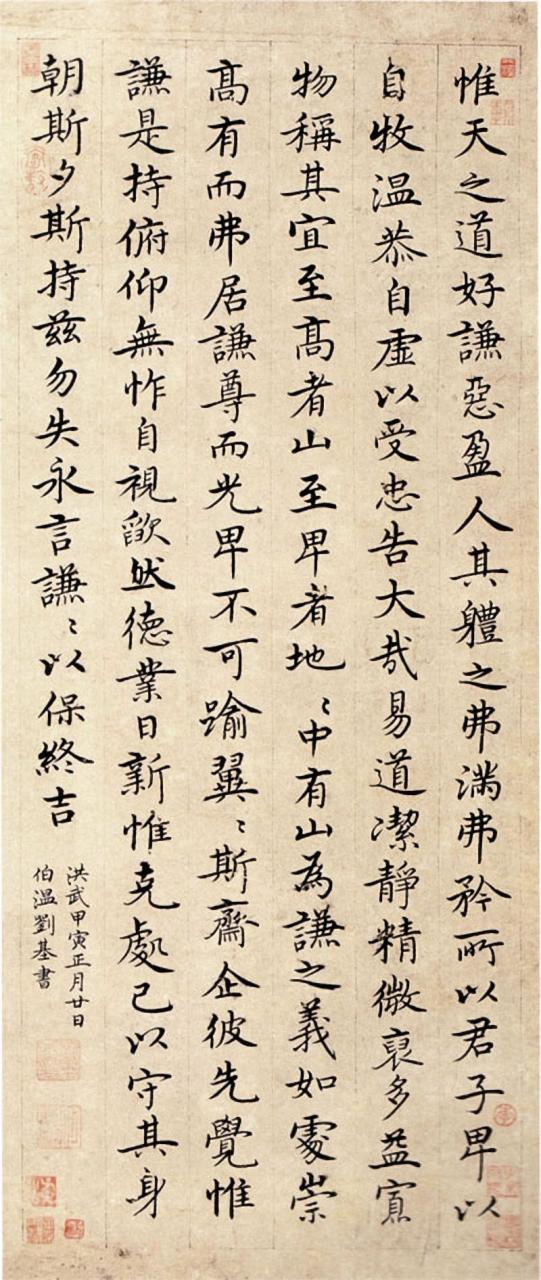 惟天之道好謙惡盈人其軆之弗滿弗矜所以君子卑以
自牧温恭自虛以受忠告大哉易道潔靜精微裒多益寡
物稱其宜至高者山至卑者地〻中有山為謙之義如處崇
高有而弗居謙尊而光卑不可踰翼〻斯齋企彼先覺惟
謙是持俯仰無怍自視歉然德業日新惟克處己以守其身
朝斯夕斯持茲勿失永言謙〻以保終吉
洪武甲寅正月廿日
伯温劉基書